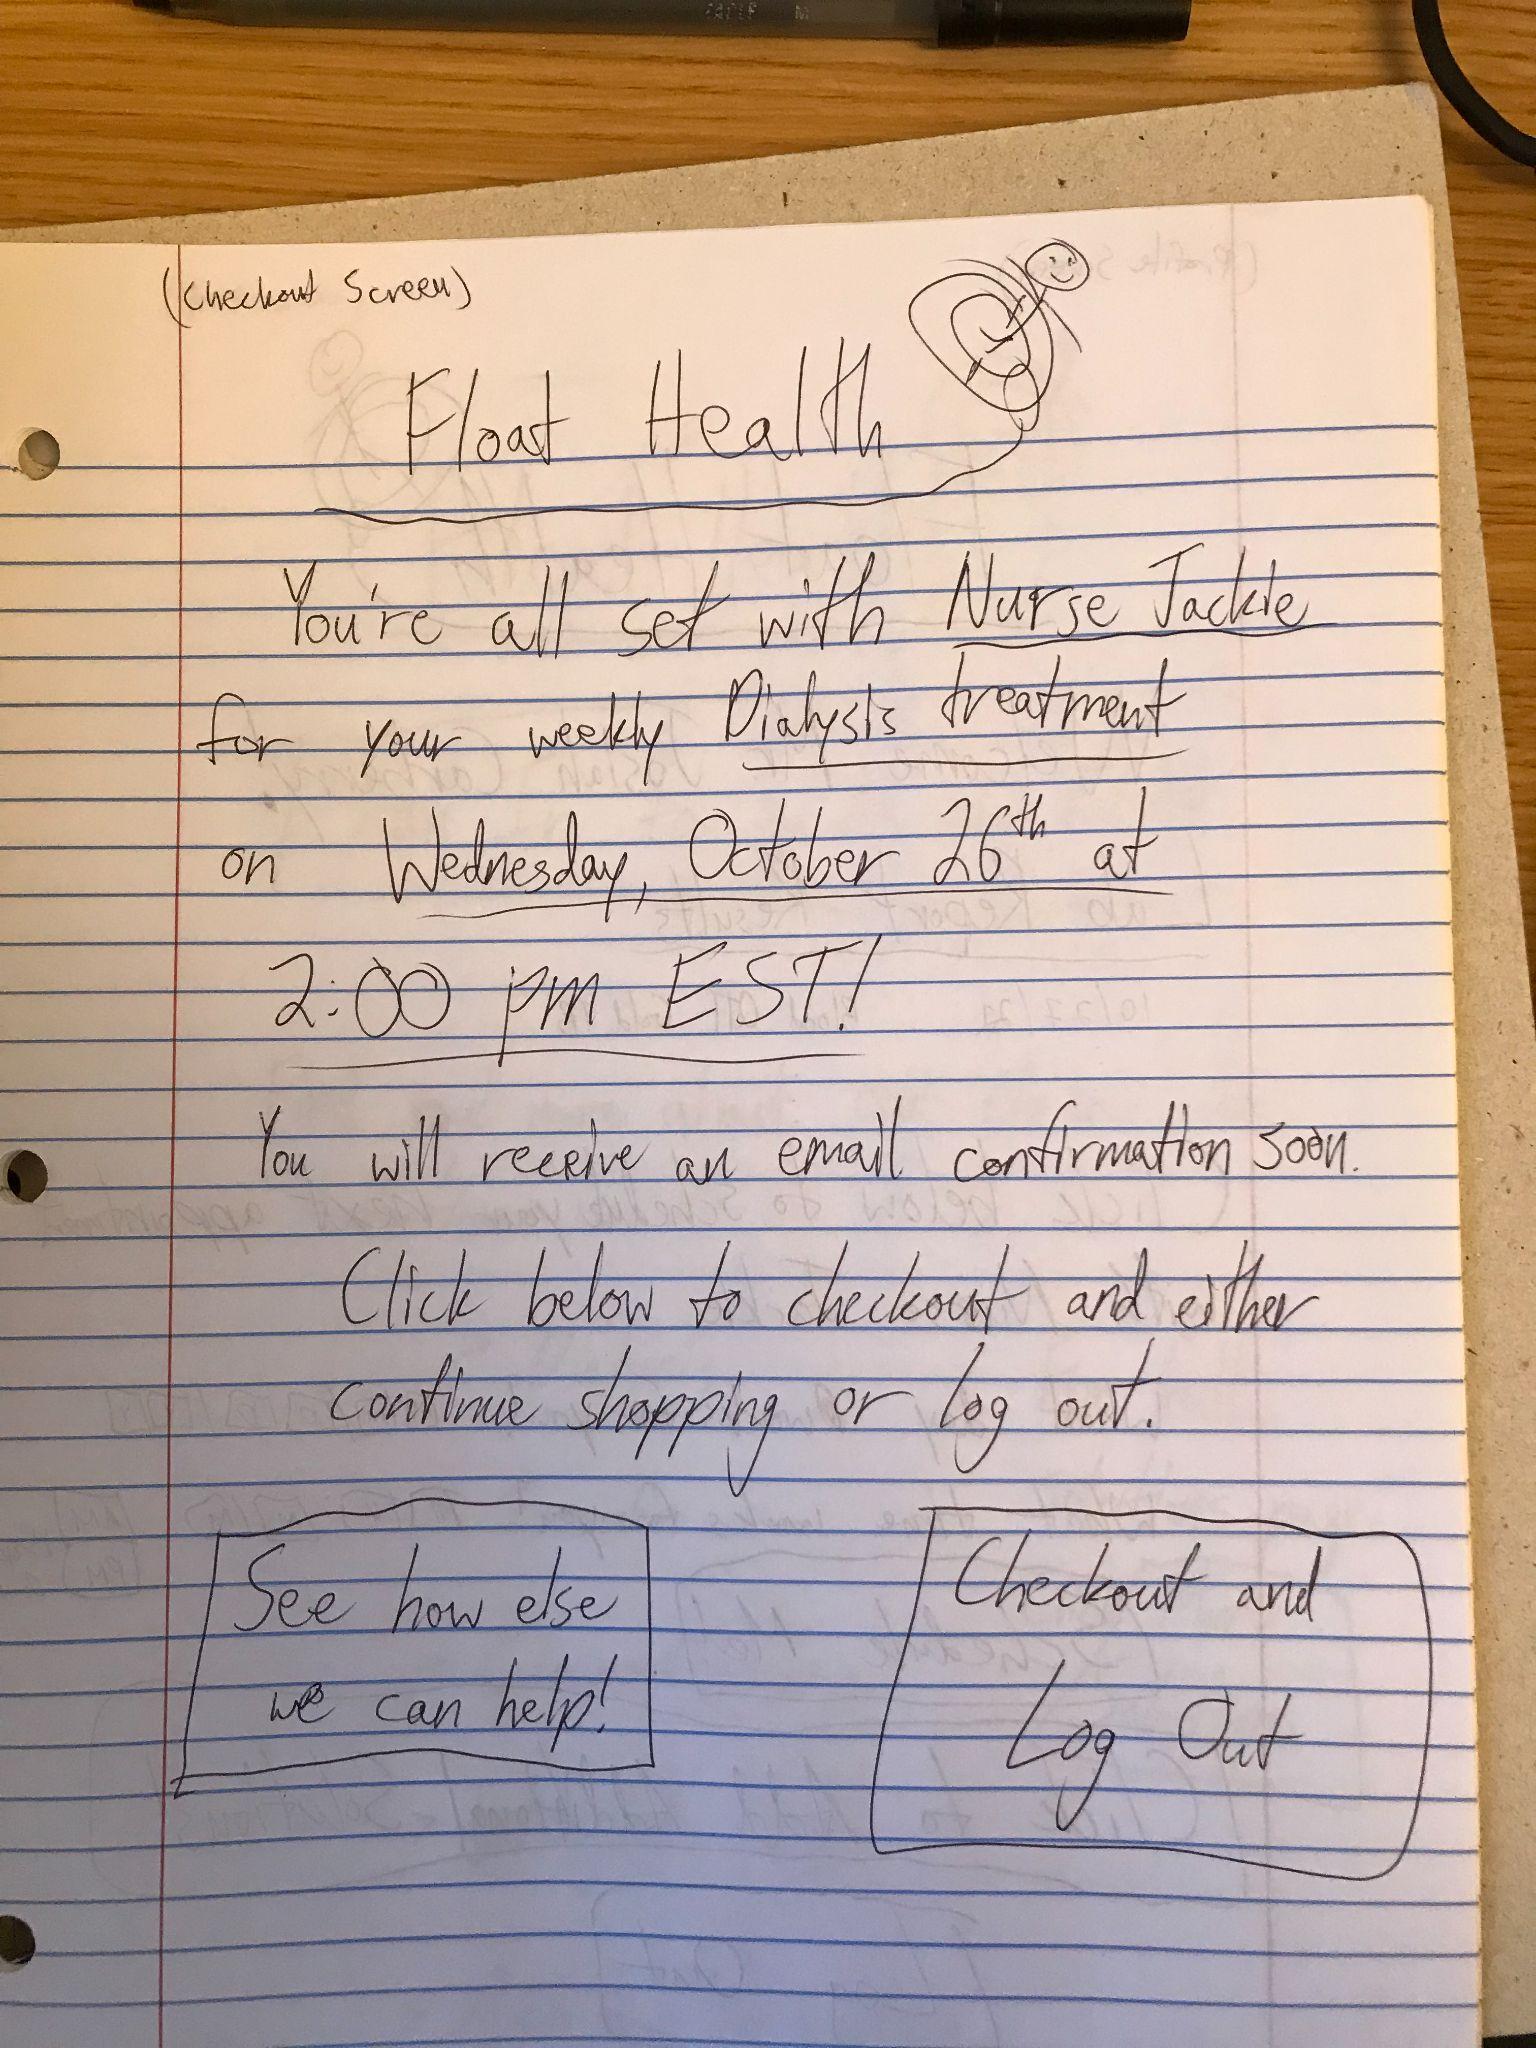 (Checkout Screen)
Float Health
You're all set with Nurse Jackie
for your weekly Dialysis treatment
on Wednesday, October 26th at
2:00 pm EST!
You will receive an email confirmation soon.
Click below to checkout and either
continue shopping or log out.
See how else
we can help!
Checkout and
Log Out